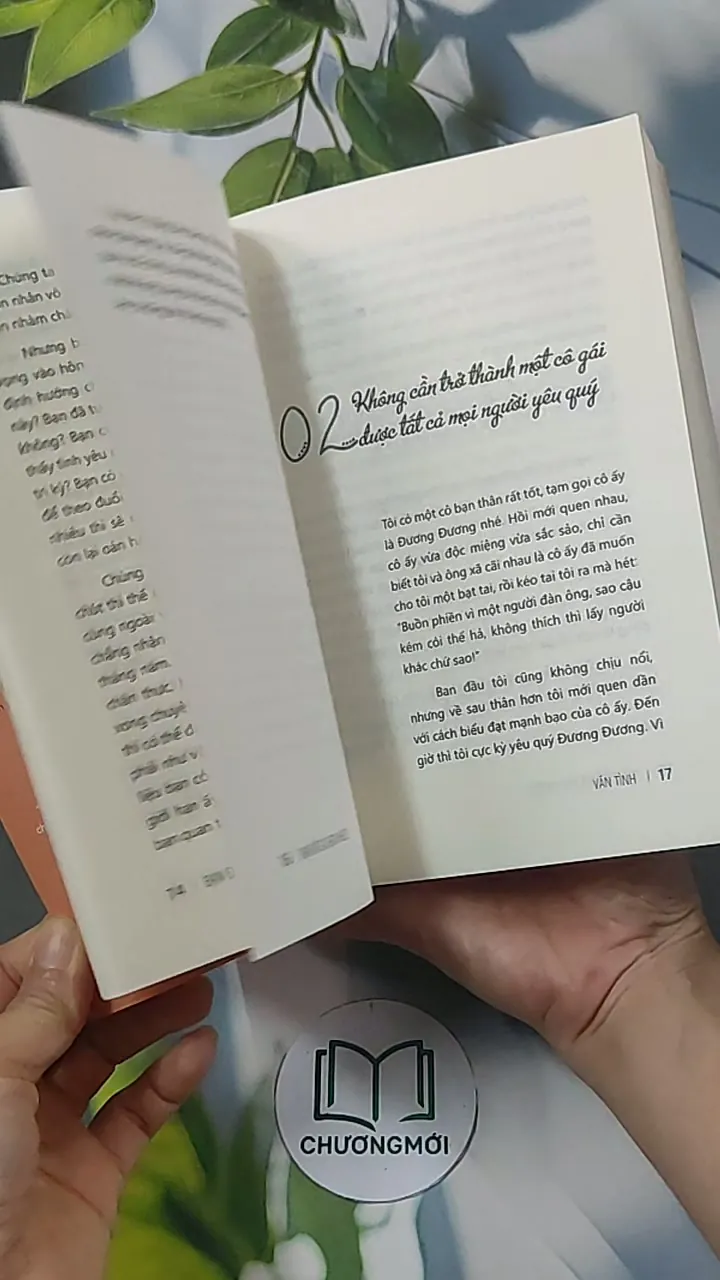 Chúng ta
n nhân vô
n nhầm ch
Nhưng b
vọng vào hôn
định hướng c
này? Bạn đã t
không? Bạn c
thấy tình yêu
tri kỷ? Bạn có
để theo đuổi
nhiêu thì sẽ
còn lại oán h
Chúng
chút thì thế
cùng ngoài
chẳng nhận
tháng năm.
chân thực.
vong chuyệ
thì có thể đ
phải như v
liệu bạn có
giới hạn ấ
bạn quan t
02 Không cần trở thành một cô gái
được tất cả mọi người yêu quý
Tôi có một cô bạn thân rất tốt, tạm gọi cô ấy
là Đương Đương nhé. Hồi mới quen nhau,
cô ấy vừa độc miệng vừa sắc sảo, chỉ cần
biết tôi và ông xã cãi nhau là cô ấy đã muốn
cho tôi một bạt tai, rồi kéo tai tôi ra mà hét:
"Buồn phiền vì một người đàn ông, sao cậu
kém cỏi thế hả, không thích thì lấy người
khác chứ sao!"
Ban đầu tôi cũng không chịu nổi,
nhưng về sau thân hơn tôi mới quen dần
với cách biểu đạt mạnh bạo của cô ấy. Đến
giờ thì tôi cực kỳ yêu quý Đương Đương. Vì
VÃN TÌNH | 17
CHƯƠNGMỚI